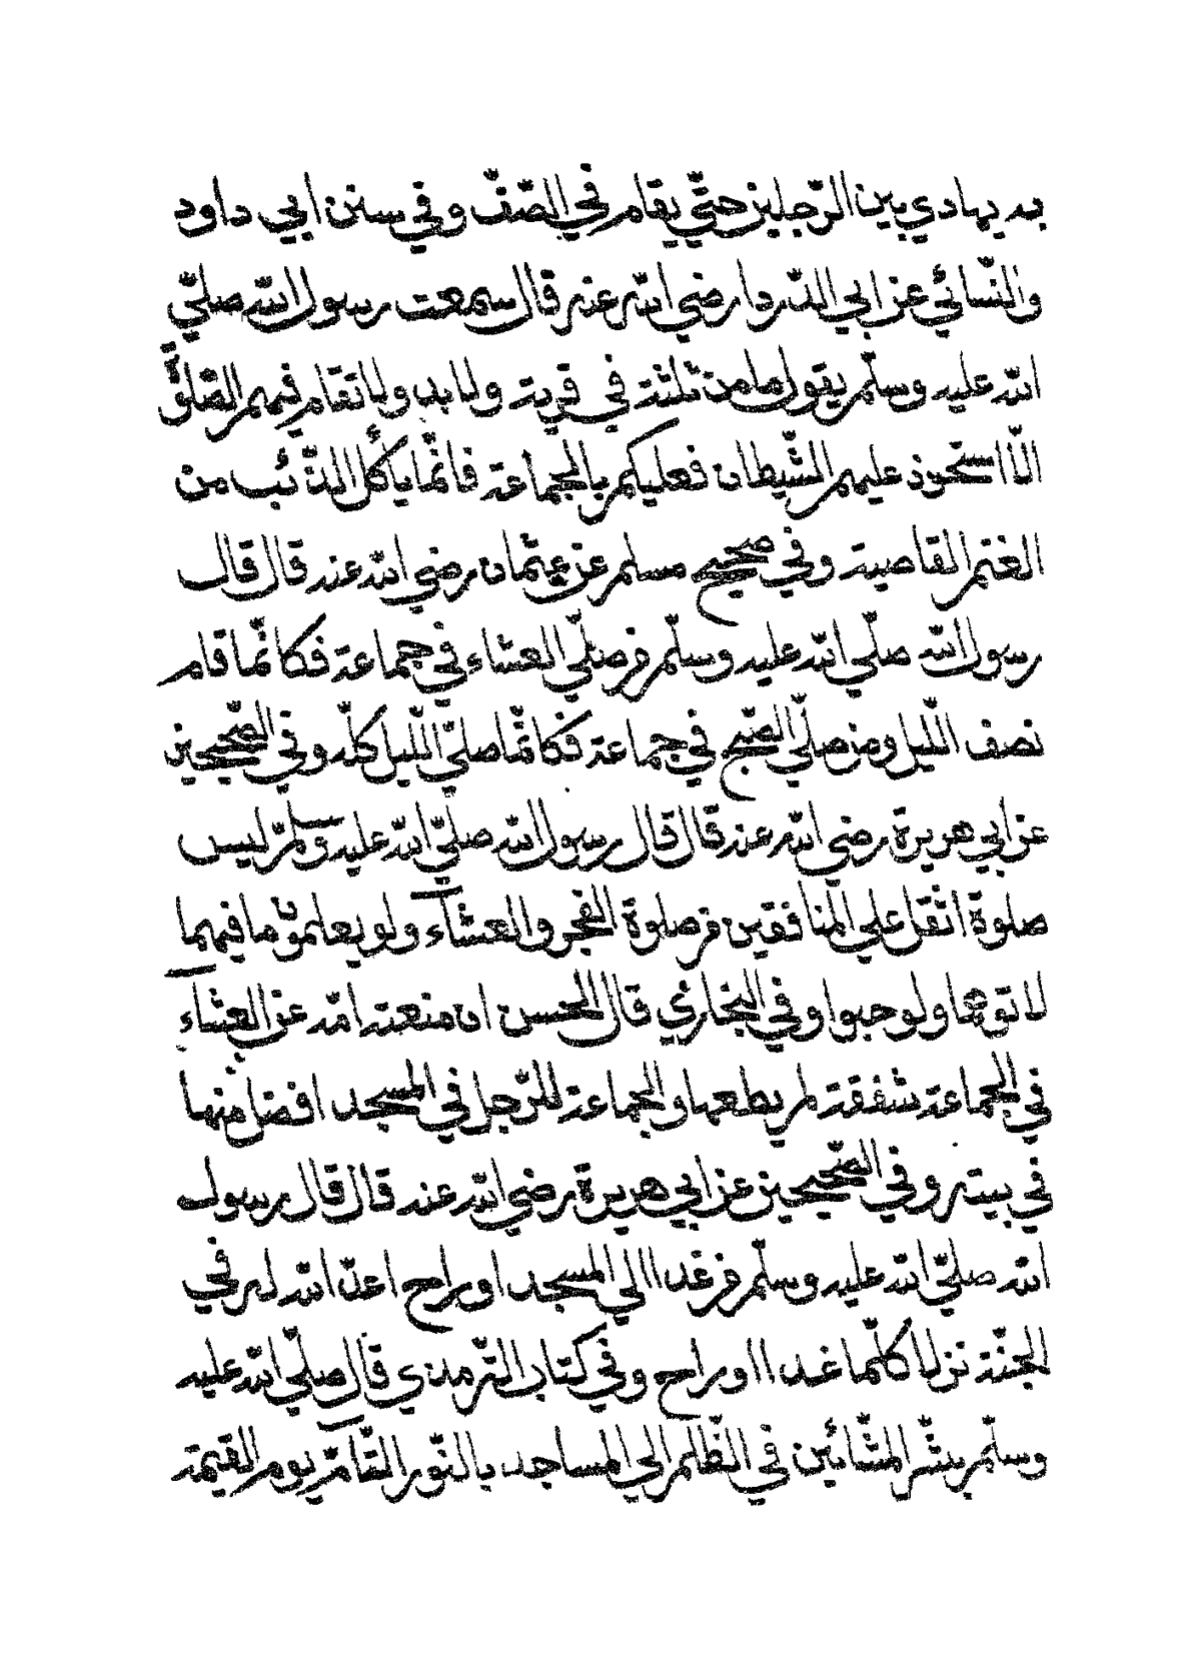 به يهادي بين الرّجلين حتّي يقام في الصّفّ وفي سنن ابي داود
والنّسائي عن ابي الدّردا رضي اللّه عنه قال سمعت رسول اللّه صلّي
اللّه عليه وسلّم يقول ما من ثلثة في قرية ولا بد ولا تقام فيهم الصّلوٰة
الّا استحوذ عليهم الشّيطان فعليكم بالجماعة فانّما ياكل الذّئب من
الغنم القاصية وفي صحيح مسلم عن عثمان رضي اللّه عنه قال قال
رسول اللّه صلّي اللّه عليه وسلّم من صلّي العشاء في جماعة فكانّما قام
نصف اللّيل ومن صلّي الصّبح في جماعة فكانّما صلّي اللّيل كلّه وفي الصّحيحين
عن ابي هريرة رضي اللّه عنه قال قال رسول اللّه صلّي اللّه عليه وسلّم ليس
صلوة اثقل علي المنافقين من صلوة الفجر والعشآء ولو يعلمون ما فيهما
لاتوهما ولو حبوا وفي البخاري قال الحسن ان منعته امّه عن العشآء
في الجماعة شفقة لم يطعها والجماعة للرّجل في المسجد افضل منها
في بيته وفي الصّحيحين عن ابي هريرة رضي اللّه عنه قال قال رسول
اللّه صلّي اللّه عليه وسلّم من غدا الي المسجد او راح اعدّ اللّه له في
الجنّة نزلا كلّما غدا او راح وفي كتاب التّرمذي قال صلّي اللّه عليه
وسلّم بشّر المشّائين في الظّلم الي المساجد بالنّور التّآمّ يوم القيٰمة